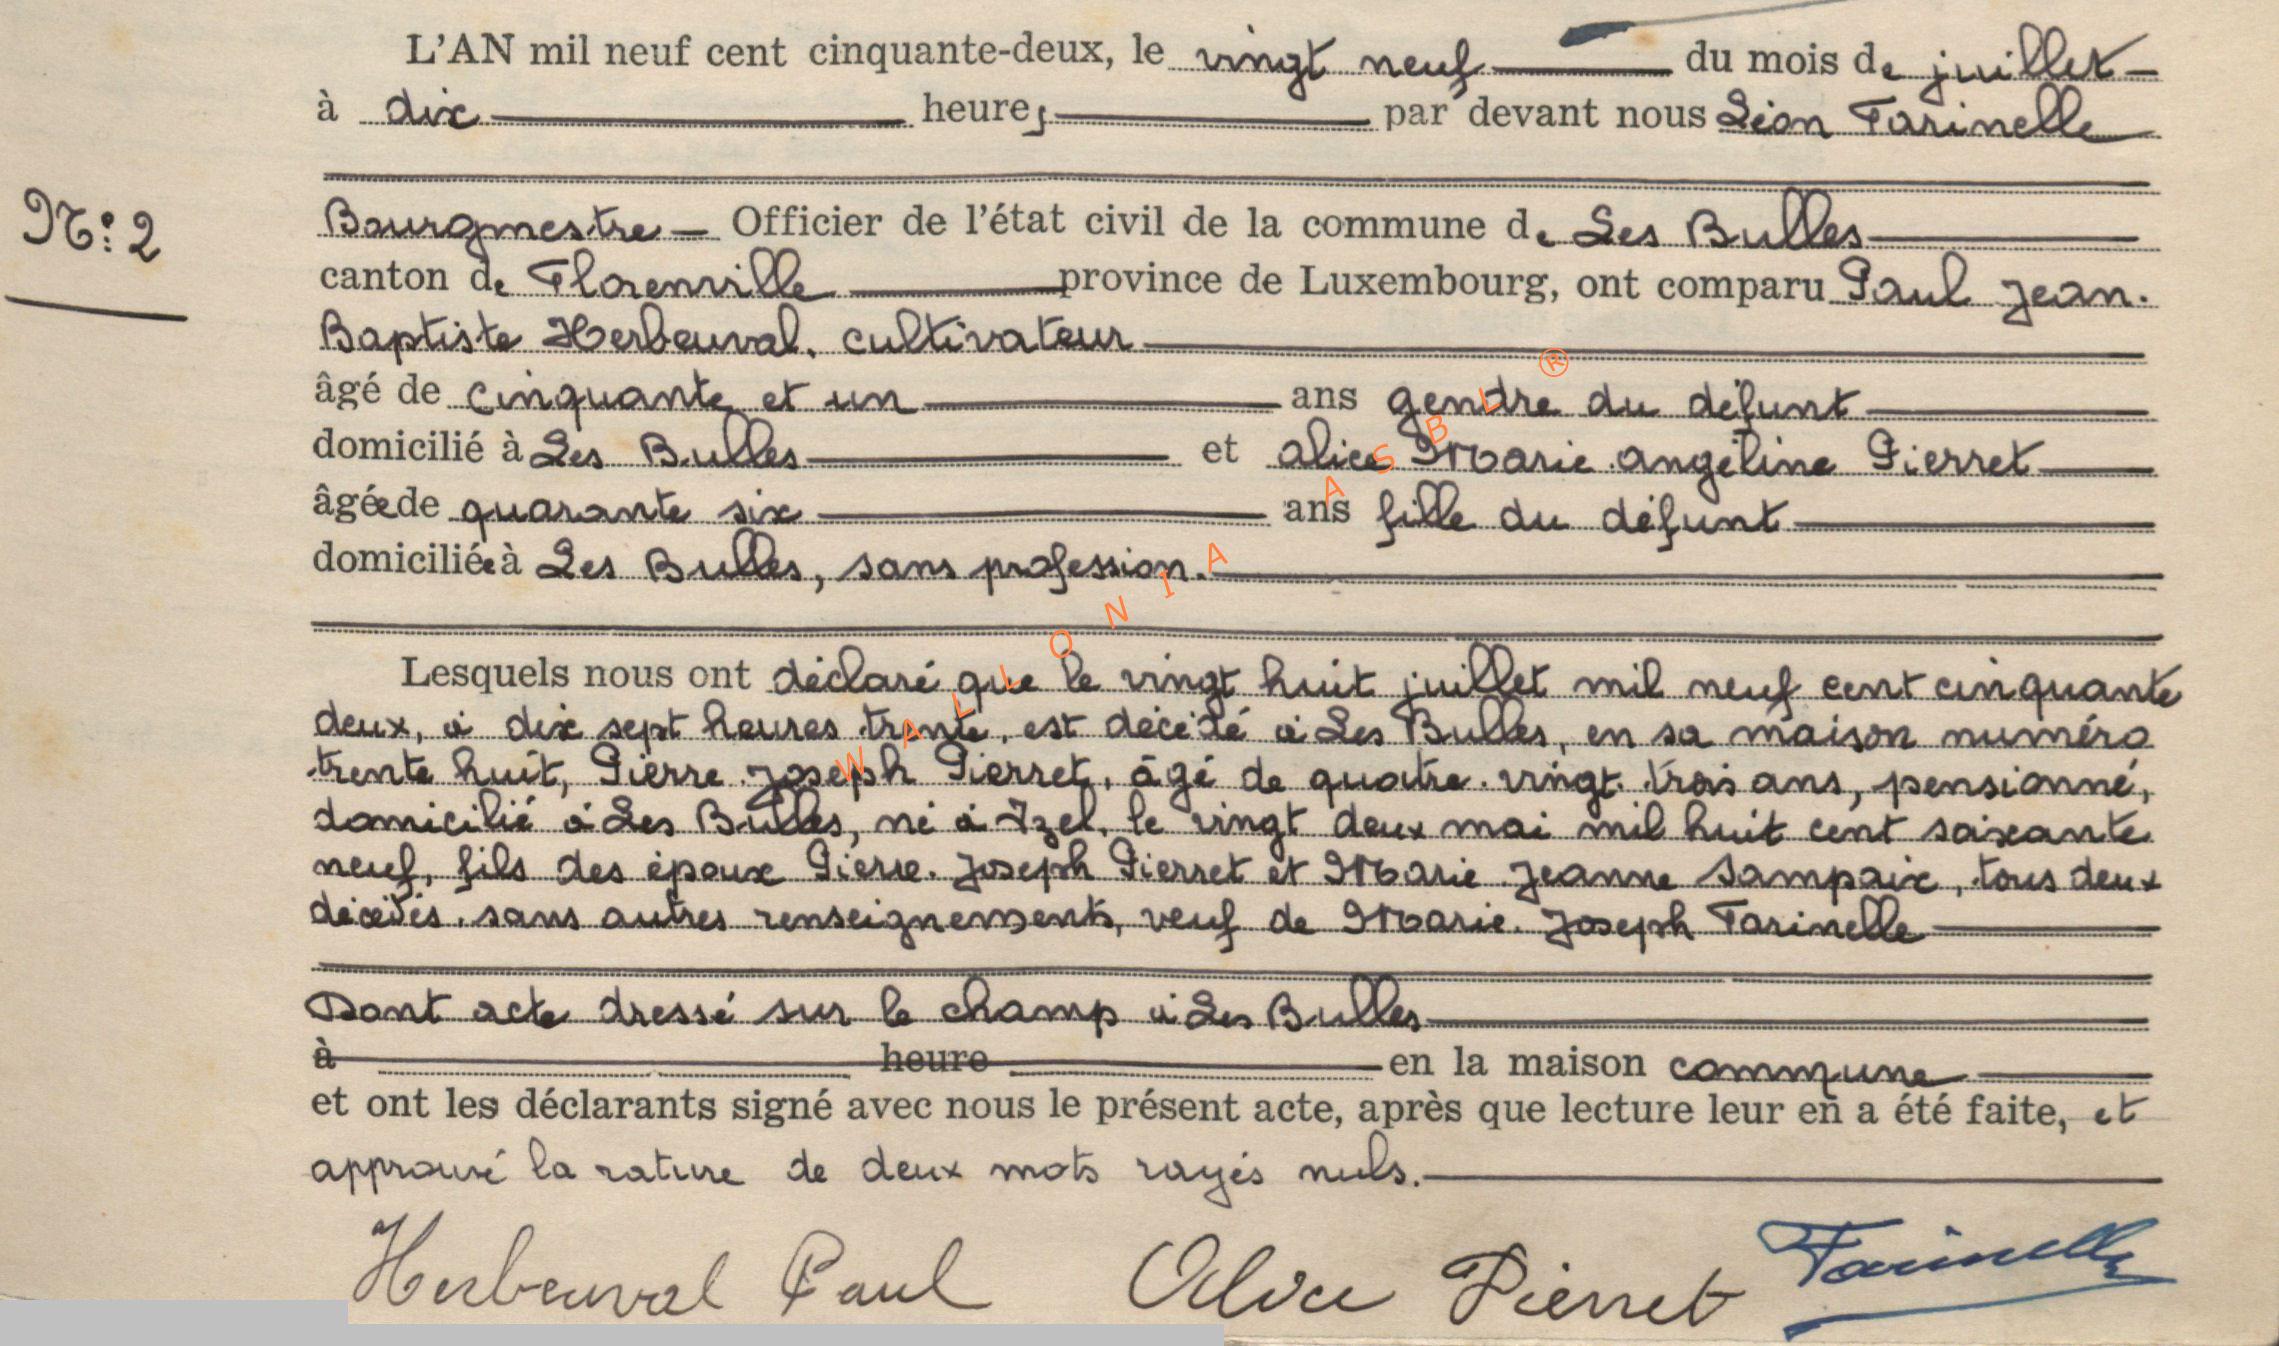 L'AN mil neuf cent cinquante-deux, le vingt neuf du mois de juillet
à dix heures par devant nous Léon Farinelle
N°: 2
Bourgmestre Officier de l'état civil de la commune de Les Bulles
canton de Florenville province de Luxembourg, ont comparu Paul Jean.
Baptiste Herbeuval, cultivateur
âgé de cinquante et un ans gendre du défunt
domicilié à Les Bulles et Alice Marie Angéline Pierret
âgée de quarante six ans fille du défunt
domiciliée à Les Bulles, sans profession.
Lesquels nous ont déclaré que le vingt huit juillet mil neuf cent cinquante
deux, à dix sept heures trente, est décédé à Les Bulles, en sa maison numéro
trente huit, Pierre Joseph Pierret, âgé de quatre. vingt. trois ans, pensionné,
domicilié à Les Bulles, né à Izel, le vingt deux mai mil huit cent soixante
neuf, fils des époux Pierre. Joseph Pierret et Marie Jeanne Sampaix, tous deux
décédés, sans autres renseignements, veuf de Marie. Joseph Farinelle
Dont acte dressé sur le champ à Les Bulles
à heure en la maison commune
et ont les déclarants signé avec nous le présent acte, après que lecture leur en a été faite, et
approuvé la rature de deux mots rayés nuls.
Herbeuval Paul Alice Pierret Farinelle
WALLONIA ASBL ®